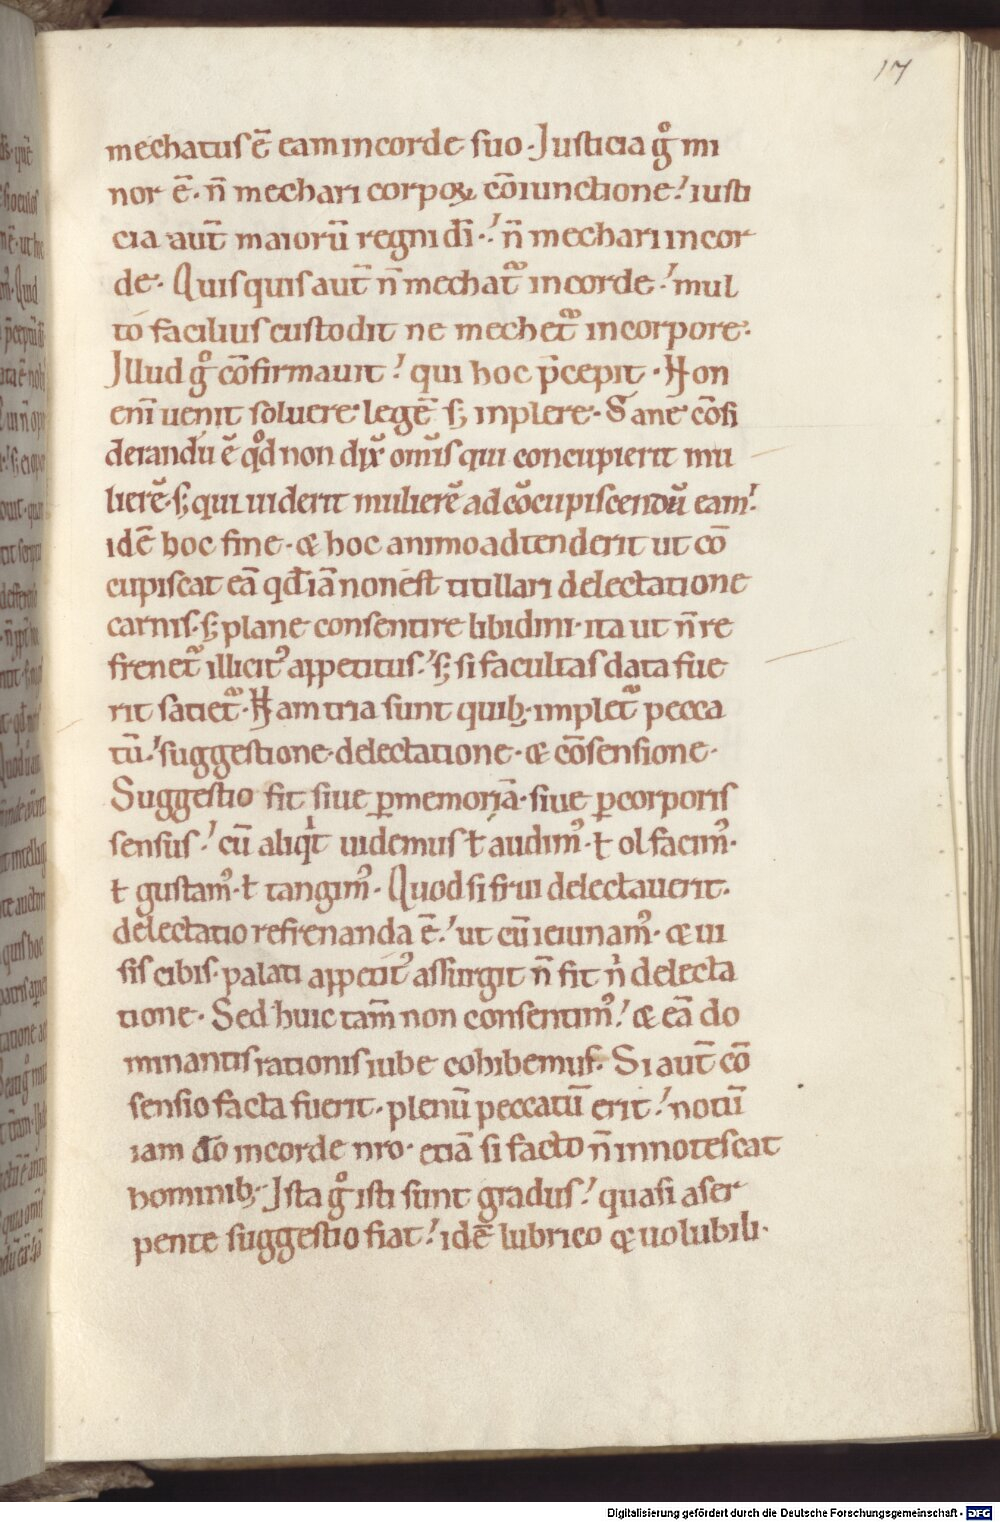 17
mechatus ē eam in corde suo. Justicia gͦ mi
nor ē. n̄ mechari corpoꝝ cōiunctione! iusti
cia aut̄ maiorū regni dī! n̄ mechari in cor
de. Quisquis aut̄ n̄ mechat᷑ in corde! mul
to facilius custodit ne mechet᷑ in corpore.
Jllud gͦ cōfirmauit! qui hoc p̄cepit. Non
eni̅ uenit soluere legē sꝫ inplere. Sane cōsi
derandū ē qͦd non dix̄ om̄is qui concupierit mu
lierē. sꝫ qui uiderit mulierē ad cōcupiscendū eam!
idē hoc fine. & hoc animo adtenderit ut cō
cupiscat eā qđ iā non est titillari delectatione
carnis. sꝫ plane consentire libidini. ita ut n̄ re
frenet᷑ illicitꝰ appetitus! sꝫ si facultas data fue
rit satiet᷑. Nam tria sunt quibꝫ implet᷑ pecca
tū! suggestione. delectatione. & cōsensione.
Suggestio fit siue ꝑ memoriā. siue ꝑ corporis
sensus! cū aliqͥt uidemus ł audimꝰ. ł olfacimꝰ.
ł gustamꝰ. ł tangimꝰ. Quod si frui delectauerit.
delectatio refrenanda ē! ut cū ieiunamꝰ. & ui
sis cibis. palati appetitꝰ assurgit n̄ fit nͥ delecta
tione. Sed huic tam̄ non consentimꝰ! & eā do
minantis rationis iube cohibemus. Si aut̄ cō
sensio facta fuerit. plenū peccatū erit! notū
iam đo in corde nro. etiā si facto n̄ innotescat
hominibꝫ. Jsta gͦ isti sunt gradus! quasi a ser
pente suggestio fiat! idē lubrico & uolubili.
Digitalisierung gefördert durch die Deutsche Forschungsgemeinschaft - DFG